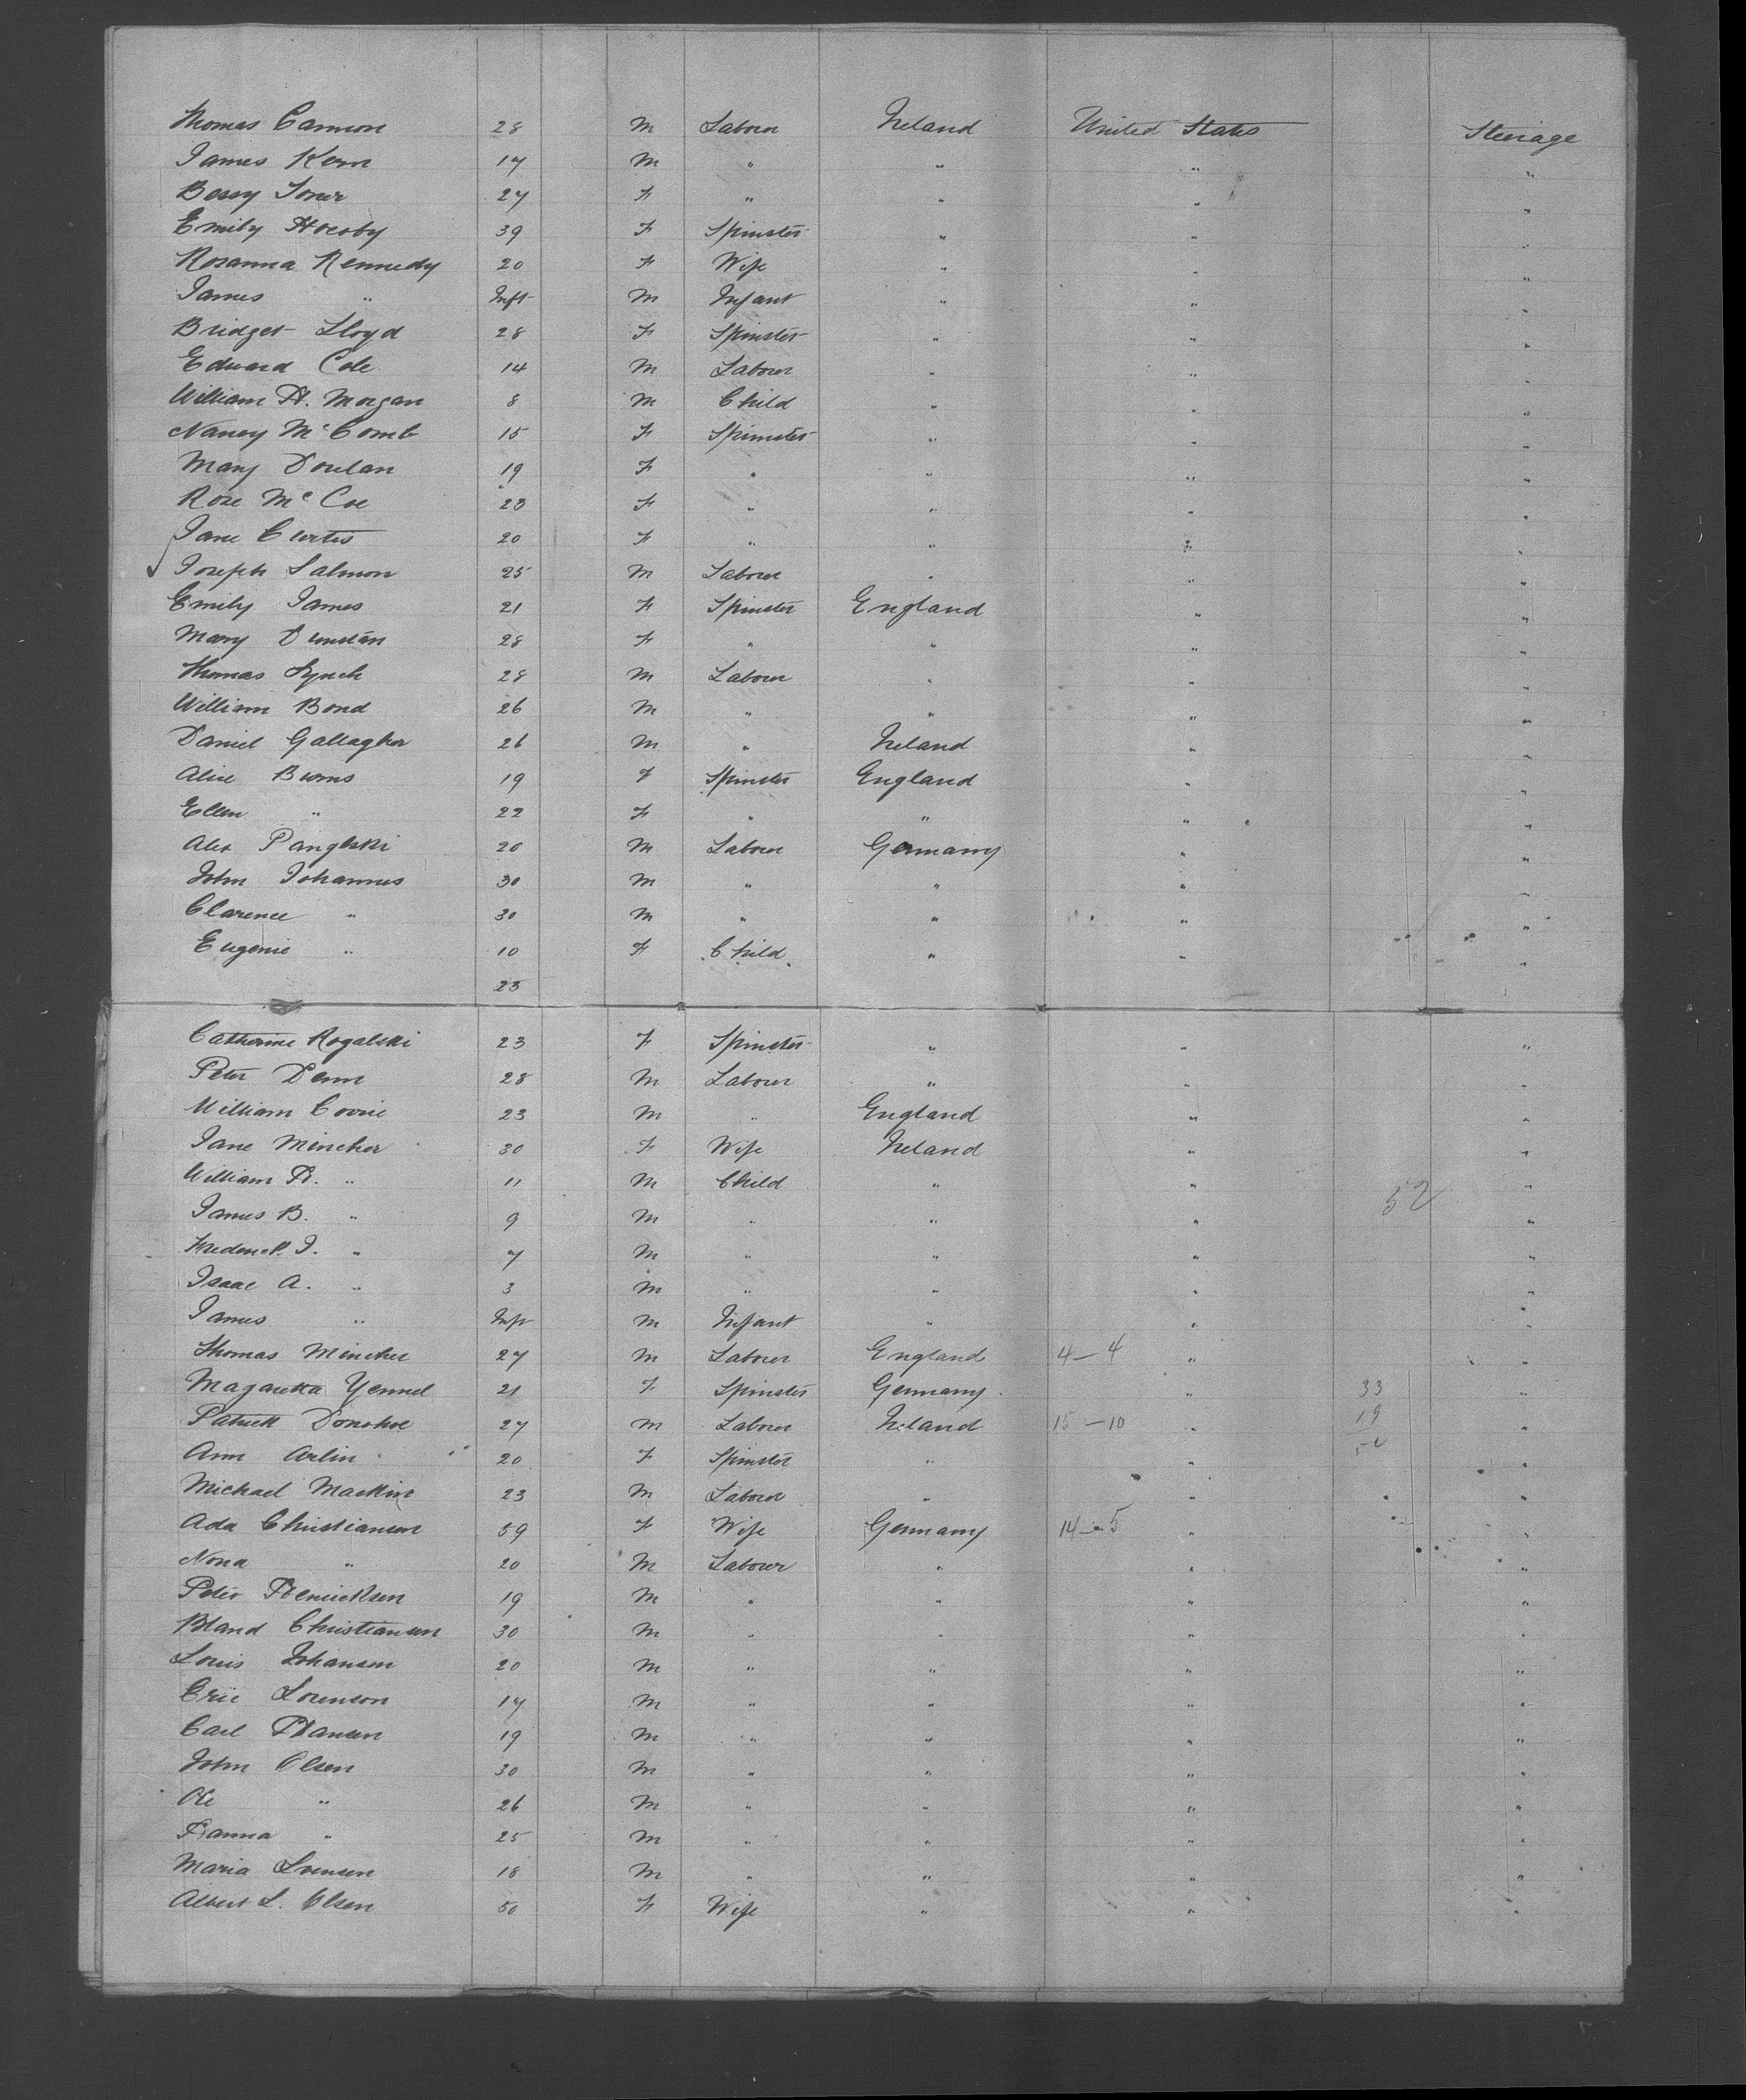 Thomas Cannon 28 M Labour Ireland United States Steerage
James Kern 17 M " " " "
Bessy Toner 27 F " " " "
Emily Hornby 39 F Spinster " " "
Rosanna Kennedy 20 F Wife " " "
James " Inft M Infant " " "
Bridget Lloyd 28 F Spinster " " "
Edward Cole 14 M Labour " " "
William H. Morgan 8 M Child " " "
Nancy McComb 15 F Spinster " " "
Mary Doulan 19 F " " " "
Rose McCoe 23 F " " " "
Jane Curtis 20 F " " " "
Joseph Salmon 25 M Labour " " "
Emily James 21 F Spinster England " "
Mary Dunstan 28 F " " " "
Thomas Lynch 28 M Labour " " "
William Bond 26 M " " " "
Daniel Gallagher 26 M " Ireland " "
Alice Burns 19 F Spinster England " "
Ellen " 22 F " " " "
Alex Panglski 20 M Labour Germany " "
John Johannes 30 M " " " "
Clarence " 30 M " " " "
Eugenie " 10 F Child " " "
25
Catherine Rogalski 23 F Spinster " " "
Peter Denn 28 M Labour " " "
William Corrie 23 M " England " "
Jane Mincher 30 F Wife Ireland " "
William H. " 11 M Child " " 52 "
James B. " 9 M " " " "
Frederick J. " 7 M " " " "
Isaac A. " 3 M " " " "
James " Inft M Infant " " "
Thomas Mincher 27 M Labour England 4-4 " "
Magaretta Yennel 21 F Spinster Germany " 33 "
Patrick Donohoe 27 M Labour Ireland 15-10 " 19 "
Ann Arlin 20 F Spinster " " 52 "
Michael Mackin 23 M Labour " " "
Ada Christiansen 59 F Wife Germany 14-5 " "
Nona " 20 M Labour " " "
Peter Henricksen 19 M " " " "
Bland Christiansen 30 M " " " "
Louis Johansen 20 M " " " "
Eric Lorenson 17 M " " " "
Carl Hansen 19 M " " " "
John Olsen 30 M " " " "
Ole " 26 M " " " "
Hanna " 25 M " " " "
Maria Svensen 18 M " " " "
Albert L. Olsen 50 F Wife " " "